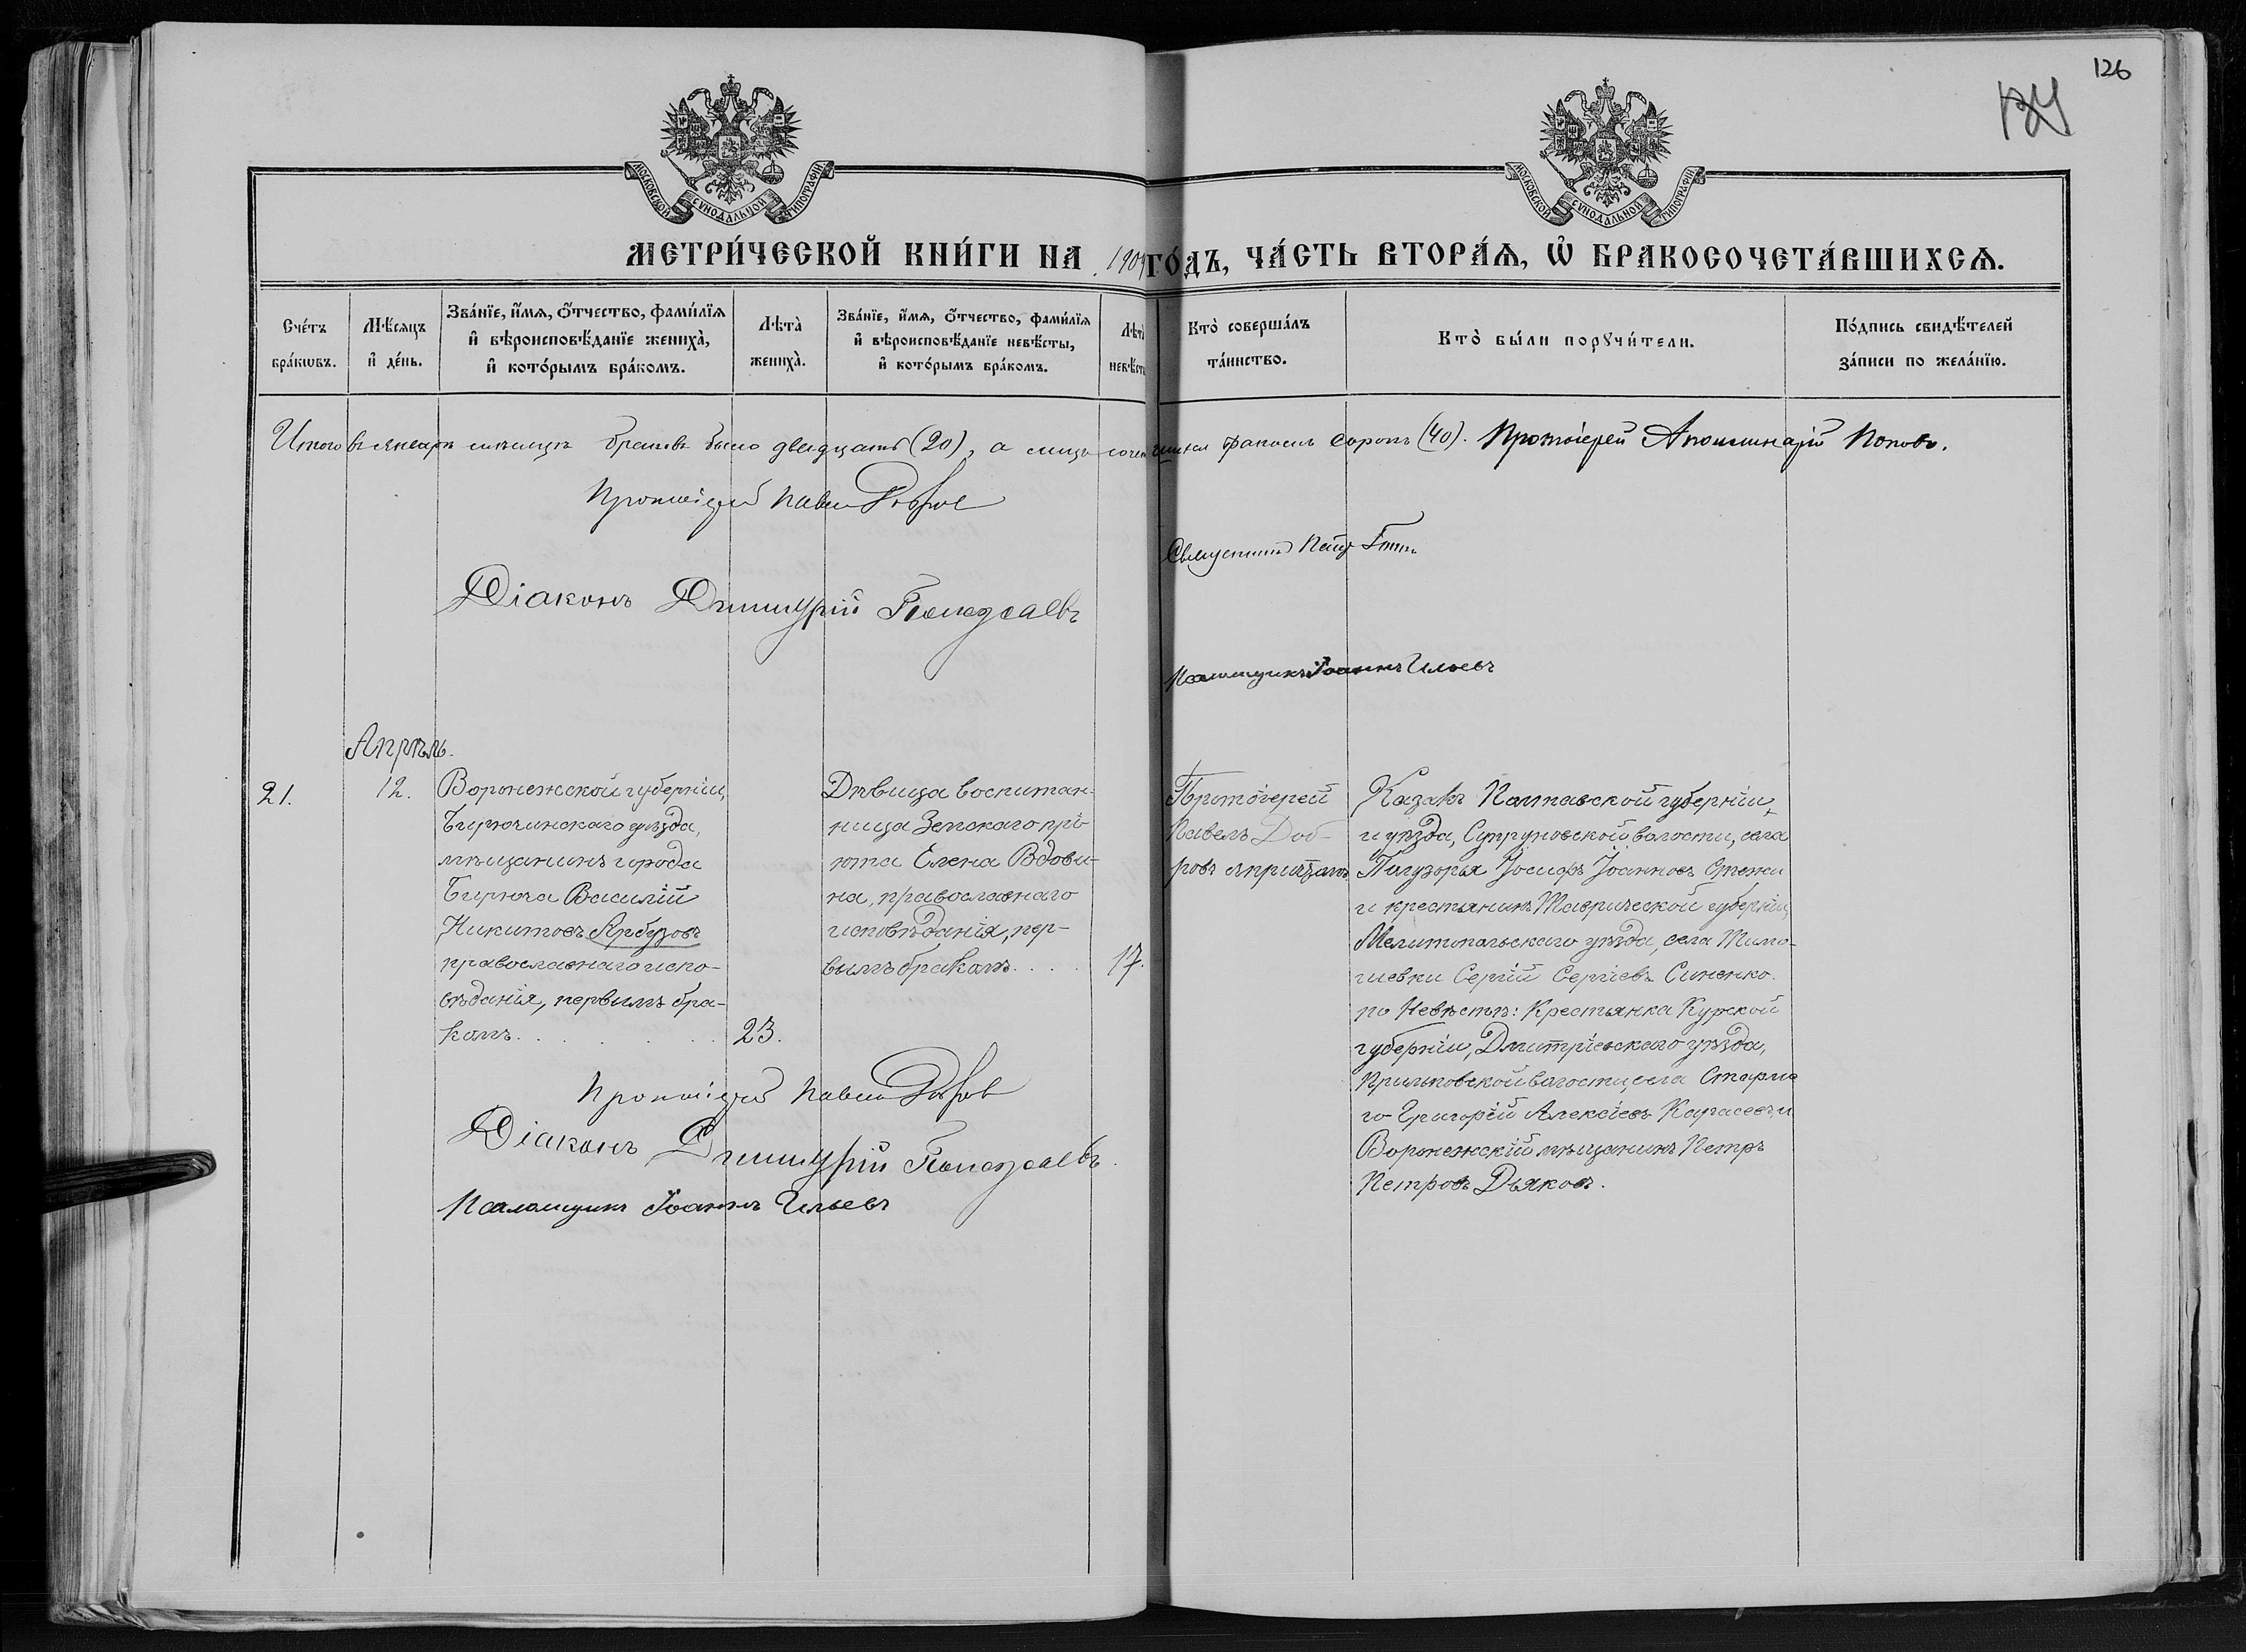 126
МОСКОВСКОЙ СѴНОДАЛЬНОЙ ТИПОГРАФІИ
МОСКОВСКОЙ СѴНОДАЛЬНОЙ ТИПОГРАФІИ
МЕТРИ́ЧЕСКОЙ КНИ́ГИ НА 1909 ГО́ДЪ, ЧА́СТЬ ВТОРА́Ѧ, Ѽ БРАКОСОЧЕТА́ВШИХСѦ.
Сче́тъ бра́кѡвъ.
Мѣ́сяцъ и҆ де́нь.
Зва́нїе, и҆́мѧ, ѻ҆́тчество, фами́лїѧ и҆ вѣроисповѣ́данїе жениха̀, и҆ кото́рымъ бра́комъ.
Лѣта̀ жениха̀.
Зва́нїе, и҆́мѧ, ѻ҆́тчество, фами́лїѧ и҆ вѣроисповѣ́данїе невѣ́сты, и҆ кото́рымъ бра́комъ.
Лѣта̀ невѣ́сты
Кто̀ соверша́лъ та́инство.
Кто̀ бы́ли порꙋчи́тели.
По́дпись свидѣ́телей за́писи по жела́нїю.
Итого въ январѣ мѣсяцѣ браковъ было двадцать (20), а лицъ бракомъ сорокъ (40). Протоіерей Аполлинарій Поповъ.
Протоіерей Павелъ Добровъ
Священникъ Петръ
Діаконъ Димитрій
Псаломщикъ Іоаннъ Ильевъ
Апрѣль.
21.
12.
Воронежской губерніи,
Бирюченскаго уѣзда,
мѣщанинъ города
Бирюча Василій
Никитовъ Арбузовъ
православнаго испо-
вѣданія, первымъ бра-
комъ. . . . . . .
23.
Дѣвица воспитан-
ница Земскаго прі-
юта Елена Вдови-
на, православнаго
исповѣданія, пер-
вымъ бракомъ. . . .
17.
Протоіерей
Павелъ Доб-
ровъ съ причтомъ
Казакъ Полтавской губерніи
и уѣзда, Супруновской волости, села
Іосифъ Іоанновъ
и крестьянинъ Таврической губерніи,
Мелитопольскаго уѣзда, села Тимо-
шевки Сергій Сергіевъ Синенко.
по Невѣстѣ: Крестьянка Курской
губерніи, Дмитріевскаго уѣзда,
волости, села Стараго
Григорій Алексіевъ Карасевъ, и
Воронежскій мѣщанинъ Петръ
Петровъ Дьяковъ.
Протоіерей Павелъ Добровъ
Діаконъ Димитрій
Псаломщикъ Іоаннъ Ильевъ